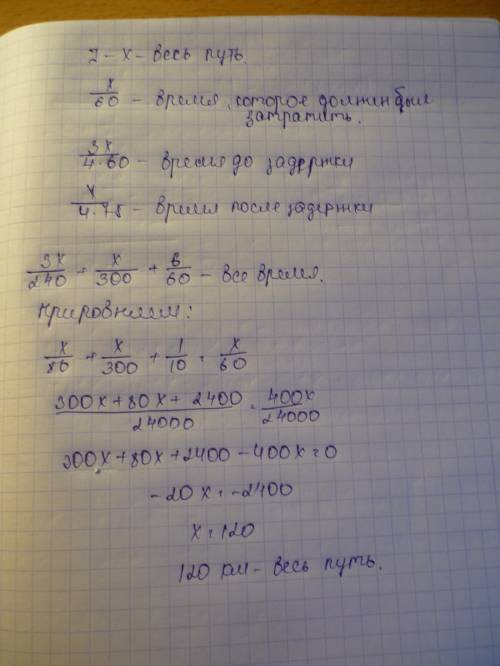 I - x - весь путь.
x/60 - время, которое должен был
затратить.
3x/4·60 - время до задержки
x/4·75 - время после задержки
3x/240 + x/300 + 6/60 - все время.
Прировняем:
x/80 + x/300 + 1/10 = x/60
300x + 80x + 2400/24000 = 400x/24000
300x + 80x + 2400 - 400x = 0
-20x = -2400
x = 120
120 км - весь путь.